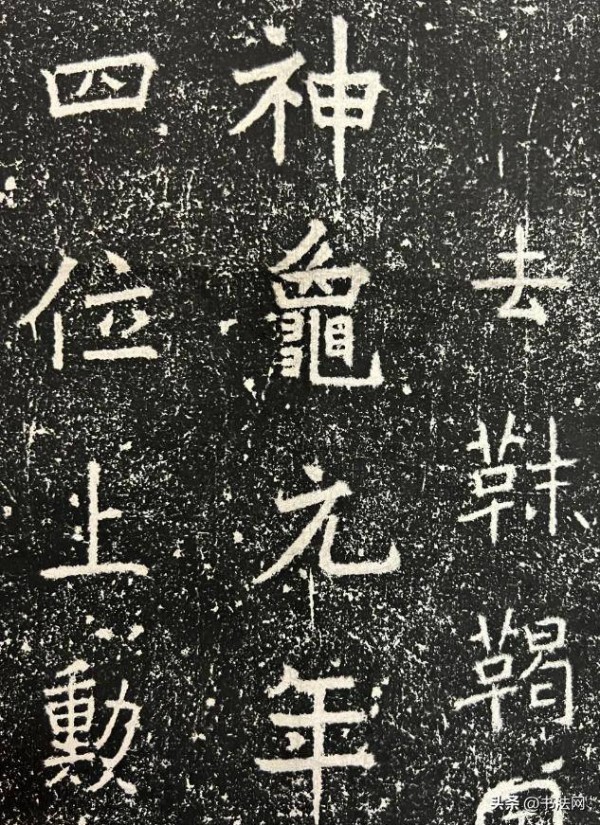 去靺鞨国
神龜元年
四位上勲
头条 @书法网